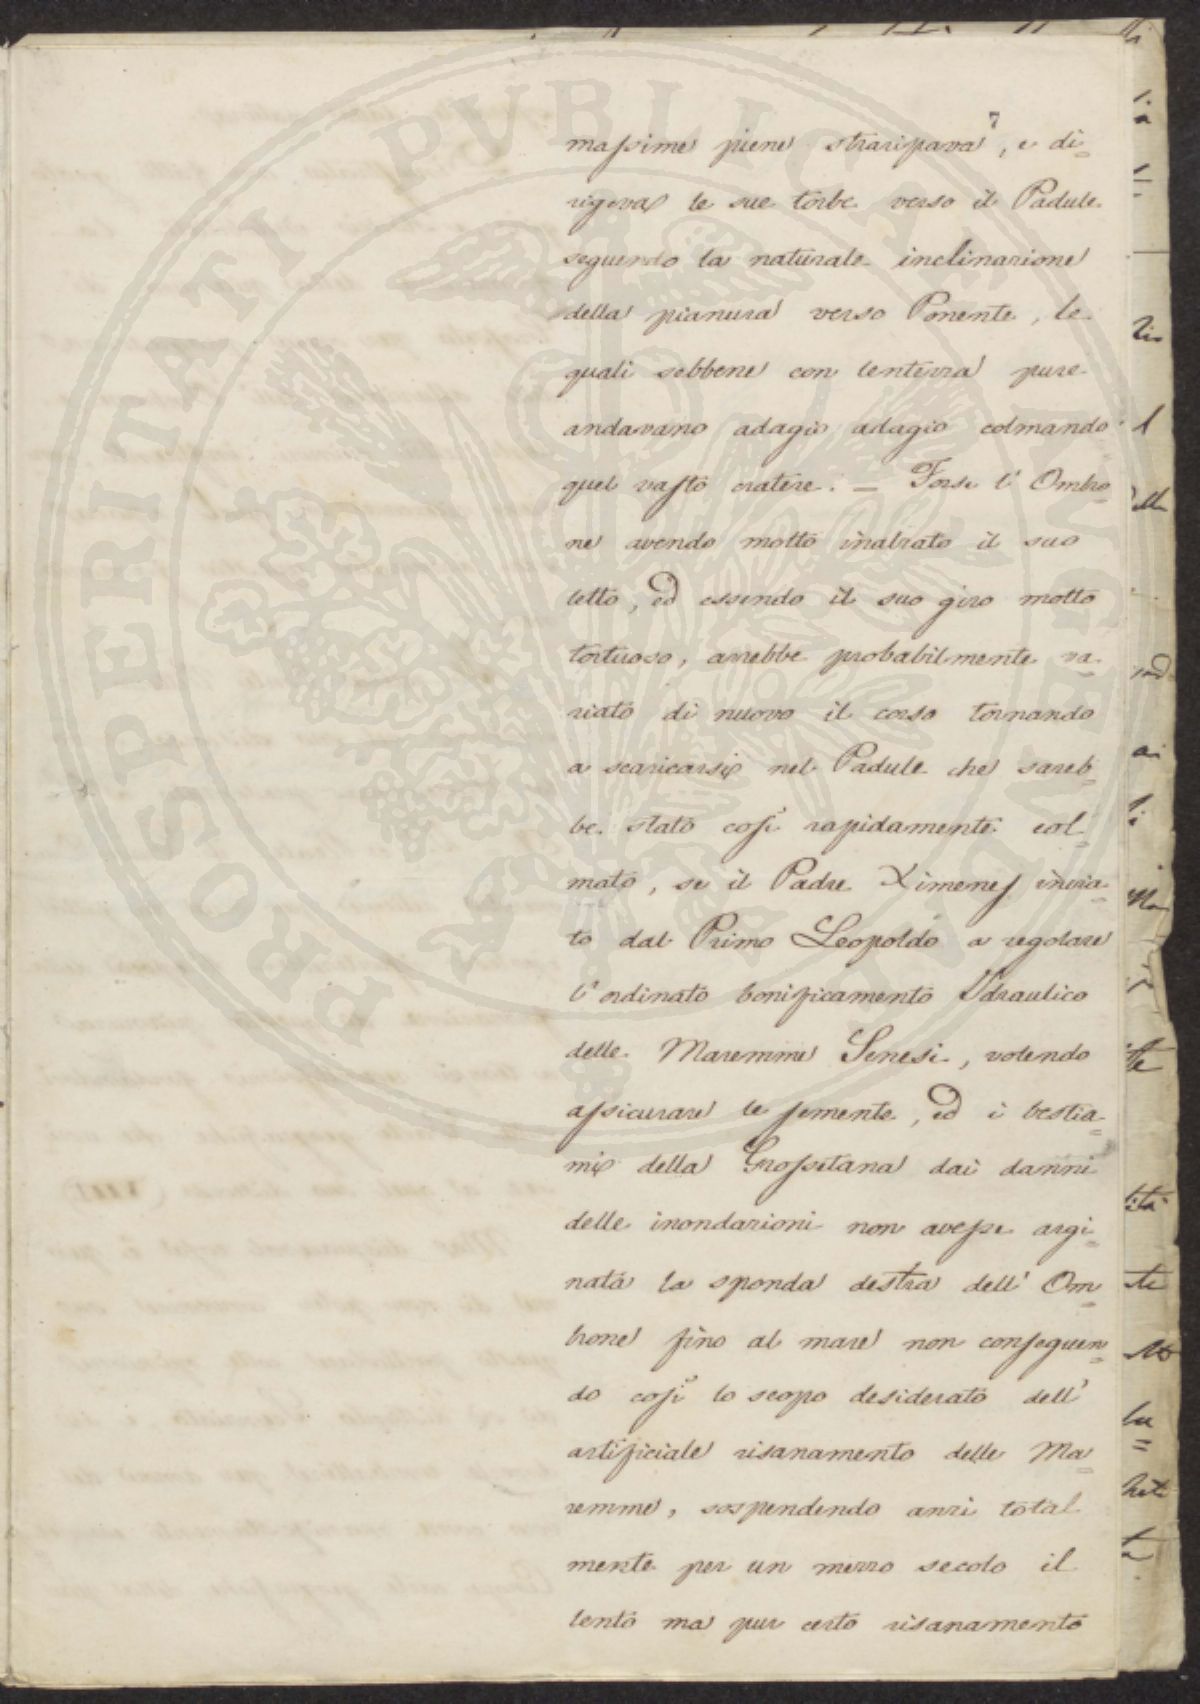 7
massime piene straripava, e di=
rigeva le sue torbe verso il Padule
seguendo la naturale inclinazione
della pianura verso Ponente, le
quali sebbene con lentezza pure
andavano adagio adagio colmando
quel vasto cratere. — Forse l'Ombro=
ne avendo molto inalzato il suo
letto, ed essendo il suo giro molto
tortuoso, avrebbe probabilmente va=
riato di nuovo il corso tornando
a scaricarsi nel Padule che sareb=
be stato così rapidamente col=
mato, se il Padre Ximenes invia=
to dal Primo Leopoldo a regolare
l'ordinato bonificamento Idraulico
delle Maremme Senesi, volendo
assicurare le semente, ed i bestia=
mi della Grossetana dai danni
delle inondazioni non avesse argi=
nata la sponda destra dell'Om=
brone fino al mare non conseguen=
do così lo scopo desiderato dell'
artificiale risanamento delle Ma=
remme, sospendendo anzi total=
mente per un mezzo secolo il
lento ma pur certo risanamento
PROSPERITATI PVBLICAE AVGENDAE